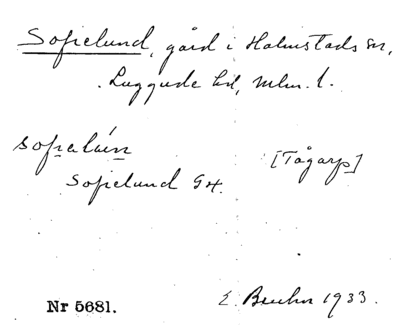 Sofielund, gård i Halmstads sn,
Luggude hd, Mlm. l.
[Tågarp]
Sofielund G4.
E. Bruhn 1933.
Nr 5681.